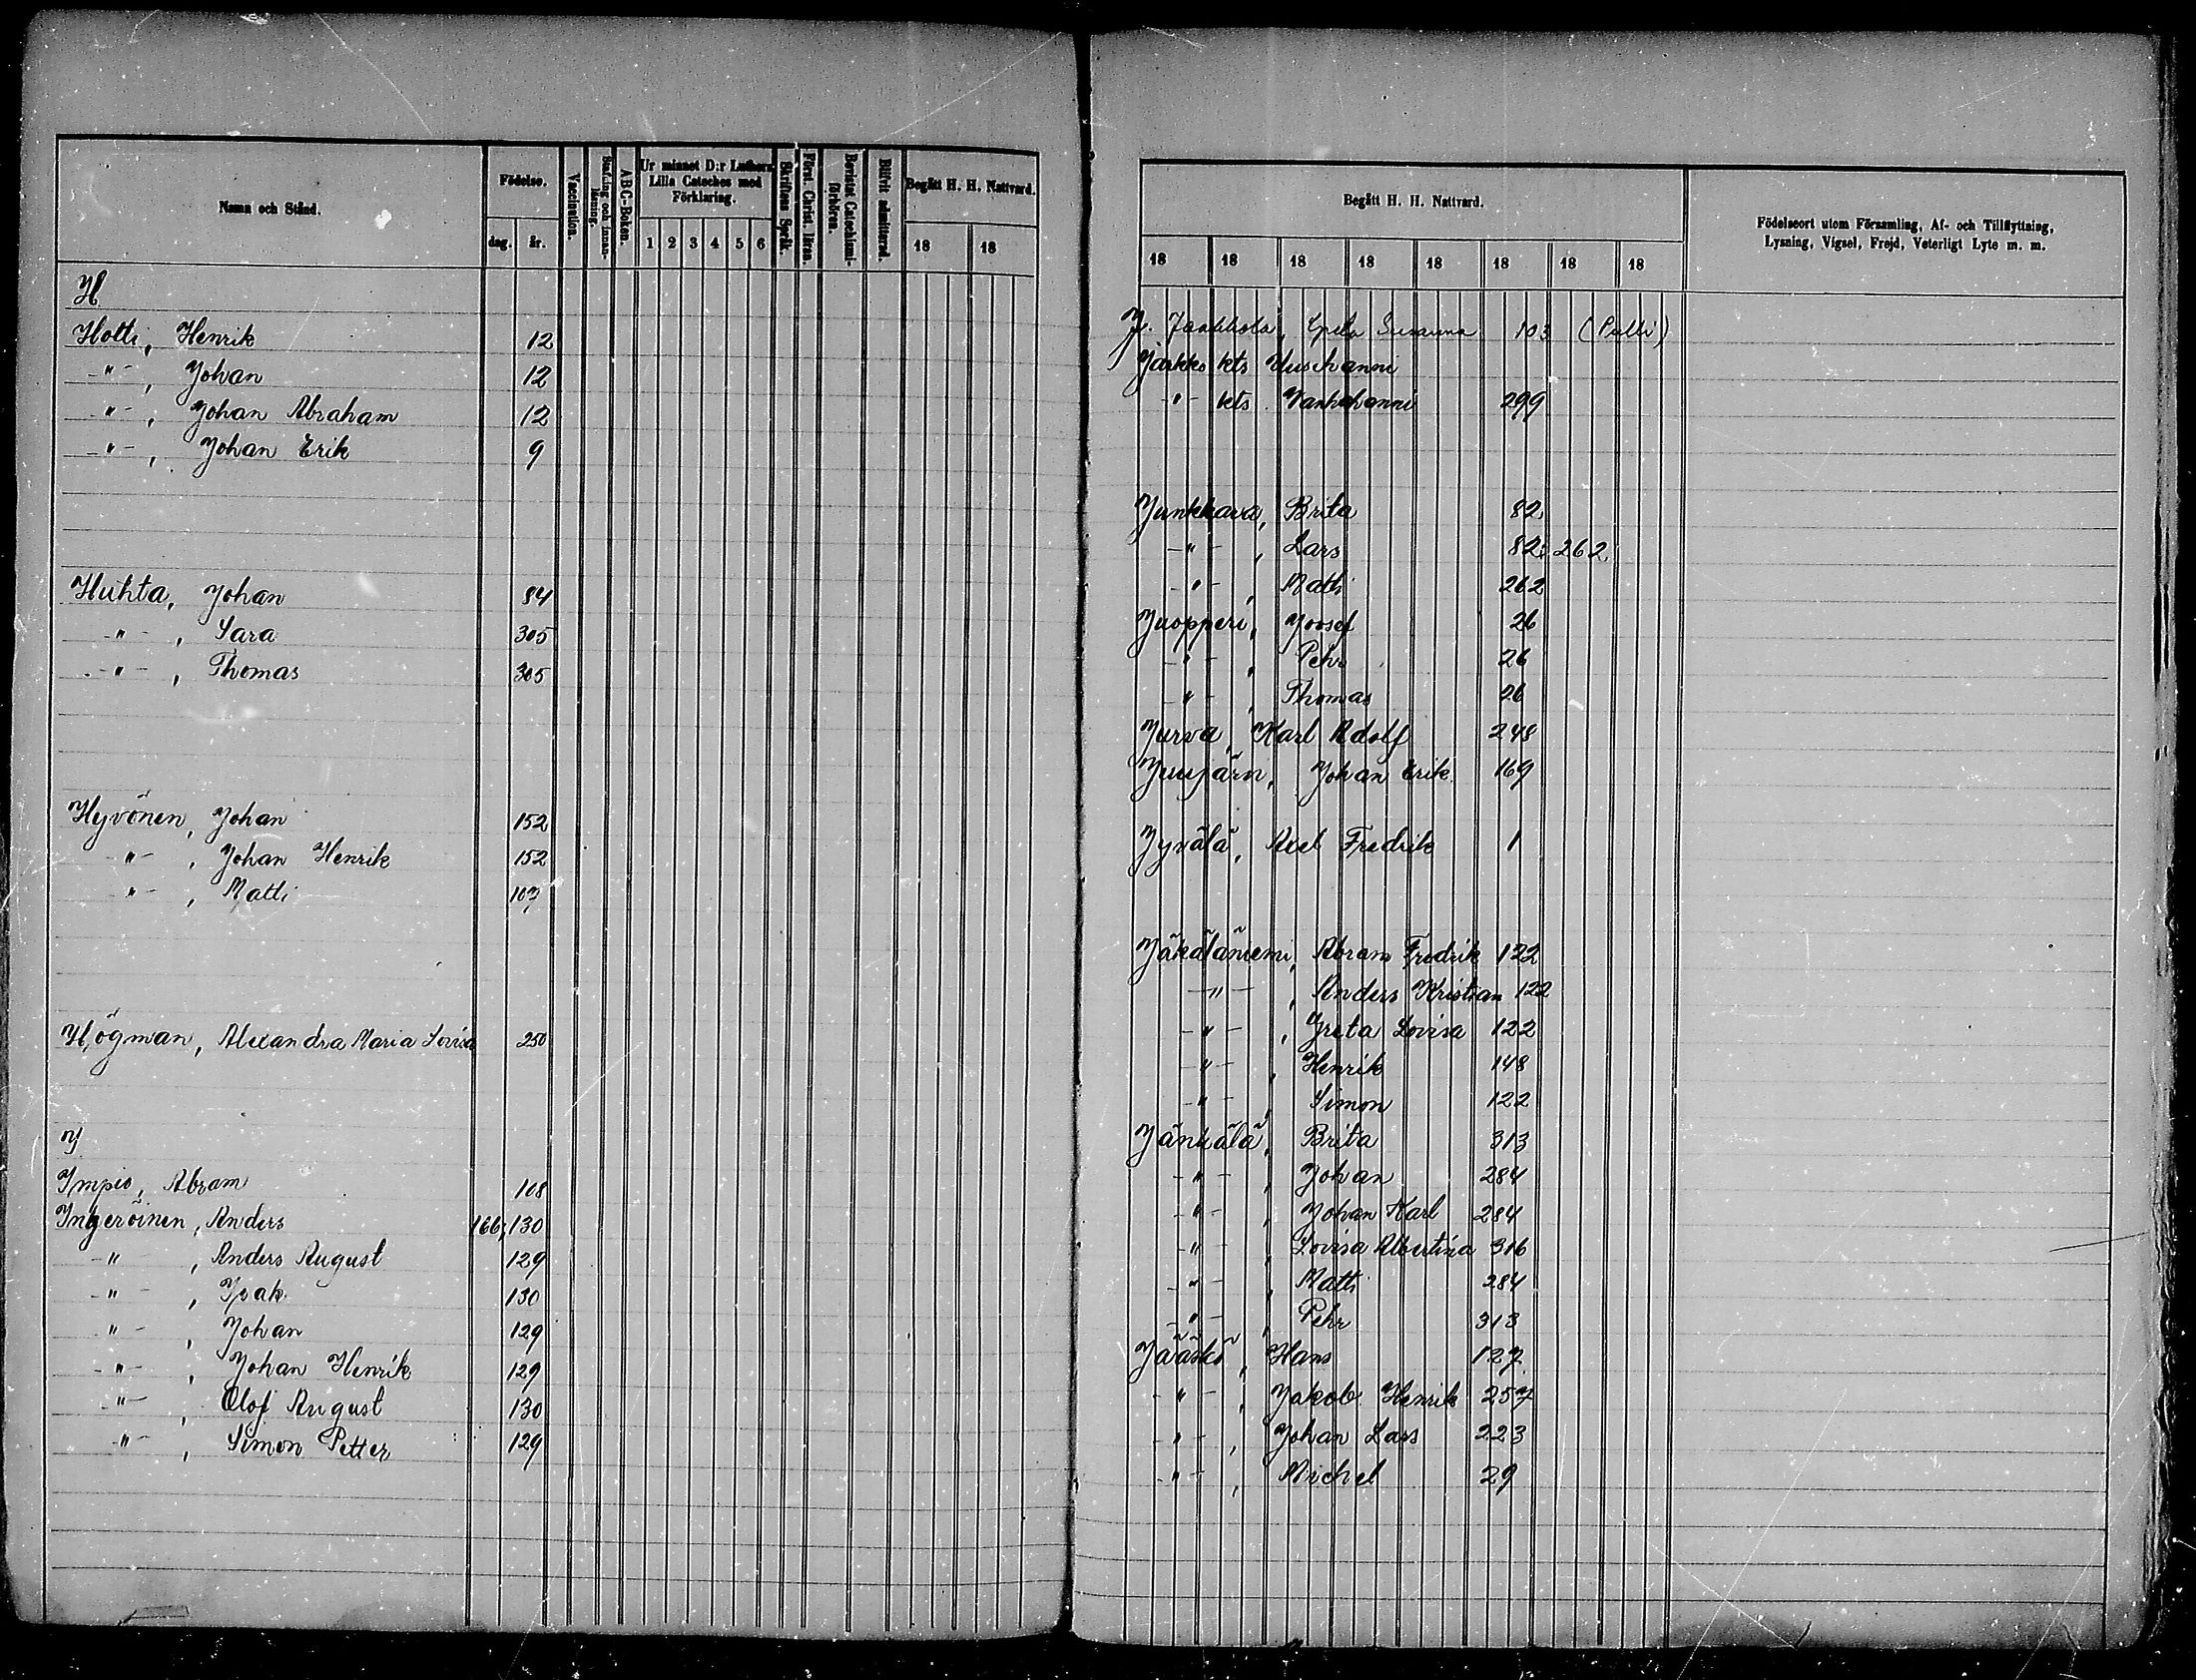 Namn och Stånd.
Födelse.
dag.
år.
Vaccination.
Stafning och innanläsning.
ABC-Boken.
Ur minnet D:r Luthers Lilla Cateches med Förklaring.
1 2 3 4 5 6
Skriftens Språk.
Först. Christ. läran.
Bevistat Catechismiförhören.
Blifvit admitterad.
Begått H. H. Nattvard.
18 18
H
Holti, Henrik 12
-"-, Johan 12
-"-, Johan Abraham 12
-"-, Johan Erik 9
Huhta, Johan 84
-"-, Sara 305
-"-, Thomas 305
Hyvönen, Johan 152
-"-, Johan Henrik 152
-"-, Matti 103
Högman, Alexandra Maria Lovisa 250
I
Impio, Abram 108
Ingeröinen, Anders 166, 130
-"-, Anders August 129
-"-, Isak 130
-"-, Johan 129
-"-, Johan Henrik 129
-"-, Olof August 130
-"-, Simon Petter 129
Begått H. H. Nattvard.
18 18 18 18 18 18 18 18
Födelseort utom Församling, Af- och Tillflyttning,
Lysning, Vigsel, Frejd, Veterligt Lyte m. m.
J. Jaakkola, Greta Susanna 103 (Palli)
Jarkko kts Uusihanni
-"- kts Vanhahanni 299
Junkkava, Brita 82
-"-, Lars 82; 262
-"-, Matti 262
Juopperi, Joosef 26
-"-, Pehr 26
-"-, Thomas 26
Jurva, Karl Adolf 248
Juujärvi, Johan Erik 169
Jyvälä, Axel Fredrik 1
Jäkäläniemi, Abram Fredrik 122
-"-, Anders Kristian 122
-"-, Greta Lovisa 122
-"-, Henrik 148
-"-, Simon 122
Jänkälä, Brita 313
-"-, Johan 284
-"-, Johan Karl 284
-"-, Lovisa Albertina 316
-"-, Matti 284
-"-, Pehr 313
Jääskö, Hans 127
-"-, Jakob Henrik 257
-"-, Johan Lars 223
-"-, Michel 29